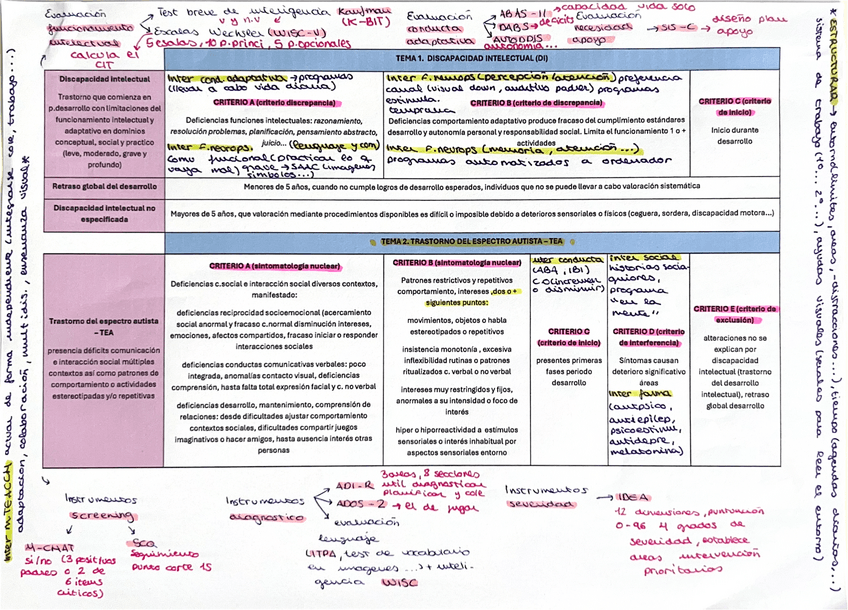 Evaluación
funcionamiento
intelectual
calcula el
CIT
Test breve de inteligencia Kaufman
V y n.V (K-BIT)
Escalas Wechsler (WISC-V)
5 escalas, 10 p. princi, 5 p. opcionales
Evaluación
conducta
adaptativa
ABAS-II → capacidad vida solo
DABS → déficits
autonomía...
Evaluación
necesidad
apoyo
SIS-C → diseño plan
apoyo
TEMA 1. DISCAPACIDAD INTELECTUAL (DI)
Discapacidad intelectual
Trastorno que comienza en
p.desarrollo con limitaciones del
funcionamiento intelectual y
adaptativo en dominios
conceptual, social y practico
(leve, moderado, grave y
profundo)
Inter cond. adaptativa → programas
(llevar a cabo vida diaria)
CRITERIO A (criterio discrepancia)
Deficiencias funciones intelectuales: razonamiento,
resolución problemas, planificación, pensamiento abstracto,
juicio...
Inter F. neurops. (lenguaje y com)
como funcional (practicar lo q
vaya mal) grave → SAAC (imagenes
símbolos...)
Inter F. neurops (percepción/atención) preferencia
canal (visual down, auditivo ) programas
estimula.
temprana
CRITERIO B (criterio de discrepancia)
Deficiencias comportamiento adaptativo produce fracaso del cumplimiento estándares
desarrollo y autonomía personal y responsabilidad social. Limita el funcionamiento 1 o +
actividades
Inter F. neurops (memoria, atención...)
programas automatizados a ordenador
CRITERIO C (criterio
de inicio)
Inicio durante
desarrollo
Retraso global del desarrollo
Menores de 5 años, cuando no cumple logros de desarrollo esperados, individuos que no se puede llevar a cabo valoración sistemática
Discapacidad intelectual no
especificada
Mayores de 5 años, que valoración mediante procedimientos disponibles es difícil o imposible debido a deterioros sensoriales o físicos (ceguera, sordera, discapacidad motora...)
TEMA 2. TRASTORNO DEL ESPECTRO AUTISTA – TEA
Trastorno del espectro autista
– TEA
presencia déficits comunicación
e interacción social múltiples
contextos así como patrones de
comportamiento o actividades
estereotipadas y/o repetitivas
CRITERIO A (sintomatología nuclear)
Deficiencias c.social e interacción social diversos contextos,
manifestado:
deficiencias reciprocidad socioemocional (acercamiento
social anormal y fracaso c.normal disminución intereses,
emociones, afectos compartidos, fracaso iniciar o responder
interacciones sociales
deficiencias conductas comunicativas verbales: poco
integrada, anomalías contacto visual, deficiencias
comprensión, hasta falta total expresión facial y c. no verbal
deficiencias desarrollo, mantenimiento, comprensión de
relaciones: desde dificultades ajustar comportamiento
contextos sociales, dificultades compartir juegos
imaginativos o hacer amigos, hasta ausencia interés otras
personas
CRITERIO B (sintomatología nuclear)
Patrones restrictivos y repetitivos
comportamiento, intereses ,dos o +
siguientes puntos:
movimientos, objetos o habla
estereotipados o repetitivos
insistencia monotonía , excesiva
inflexibilidad rutinas o patrones
ritualizados c. verbal o no verbal
intereses muy restringidos y fijos,
anormales a su intensidad o foco de
interés
hiper o hiporreactividad a estímulos
sensoriales o interés inhabitual por
aspectos sensoriales entorno
Inter conducta
(ABA, IBI)
C o (incremen
o disminuir)
CRITERIO C
(criterio de inicio)
presentes primeras
fases periodo
desarrollo
Inter. social
historias socia
guiones,
programa
"en la
mente"
CRITERIO D (criterio
de interferencia)
Síntomas causan
deterioro significativo
áreas
Inter farma
(antipsico,
antiepilep,
psicoestimul,
antidepre,
melatonina)
CRITERIO E (criterio de
exclusión)
alteraciones no se
explican por
discapacidad
intelectual (trastorno
del desarrollo
intelectual), retraso
global desarrollo
Instrumentos
screening
M-CHAT
si/no (3 positivas
padres o 2 de
6 items
críticos)
SCQ
Seguimiento
punto corte 15
Instrumentos
diagnostico
3 areas, 8 secciones
ADI-R util diagnosticar
planificar y cole
ADOS-2 → el de jugar
evaluación
lenguaje
(ITPA, test de vocabulario
en imagenes ...) + inteli-
gencia WISC
Instrumentos
severidad
IDEA
12 dimensiones, puntuación
0-96 4 grados de
severidad, establece
areas intervención
prioritarias
Inter M-TEACCH actuar de forma independiente (integrarse cole, trabajo...)
adaptación, colaboración, multidis., enseñanza visual*
* ESTRUCTURAD → entorno (limites, areas, -distracciones...), tiempo (agendas diarias,...)
sistema de trabajo (1º... 2º...), ayudas visuales (señales para leer el entorno)